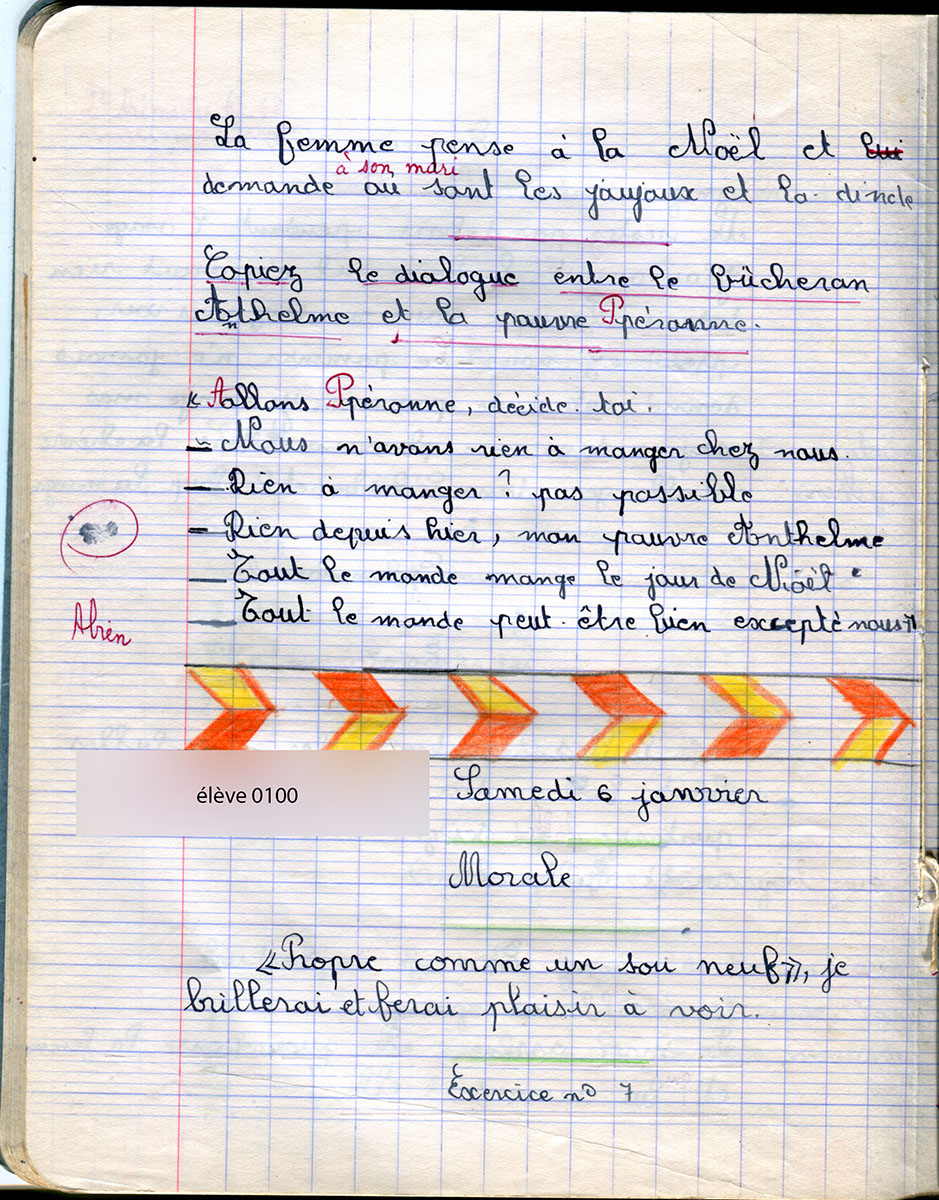 La femme pense à la Noël et lui
à son mari
demande où sont les joujoux et la dinde
Copiez le dialogue entre le bûcheron
Anthelme et la pauvre Péronne.
« Allons Péronne, décide-toi.
– Nous n'avons rien à manger chez nous.
– Rien à manger ? pas possible
– Rien depuis hier, mon pauvre Anthelme
– Tout le monde mange le jour de Noël.
– Tout le monde peut-être bien excepté nous »
élève 0100
Samedi 6 janvier
Morale
« Propre comme un sou neuf », je
brillerai et ferai plaisir à voir.
Exercice nº 7